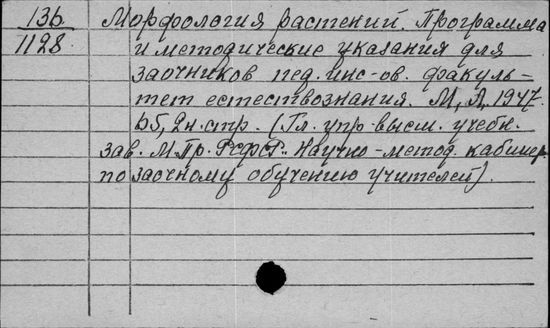 13б Морфология растений. Программа
1128 и методические указания для
заочников пед. инс-ов. факуль-
тет естествознания. М, 1947.
2н. стр. (Гл. упр. высш. учебн.
зав. М.Пр. РСФСР. Научно-метод. кабинет
по заочному обучению учителей).